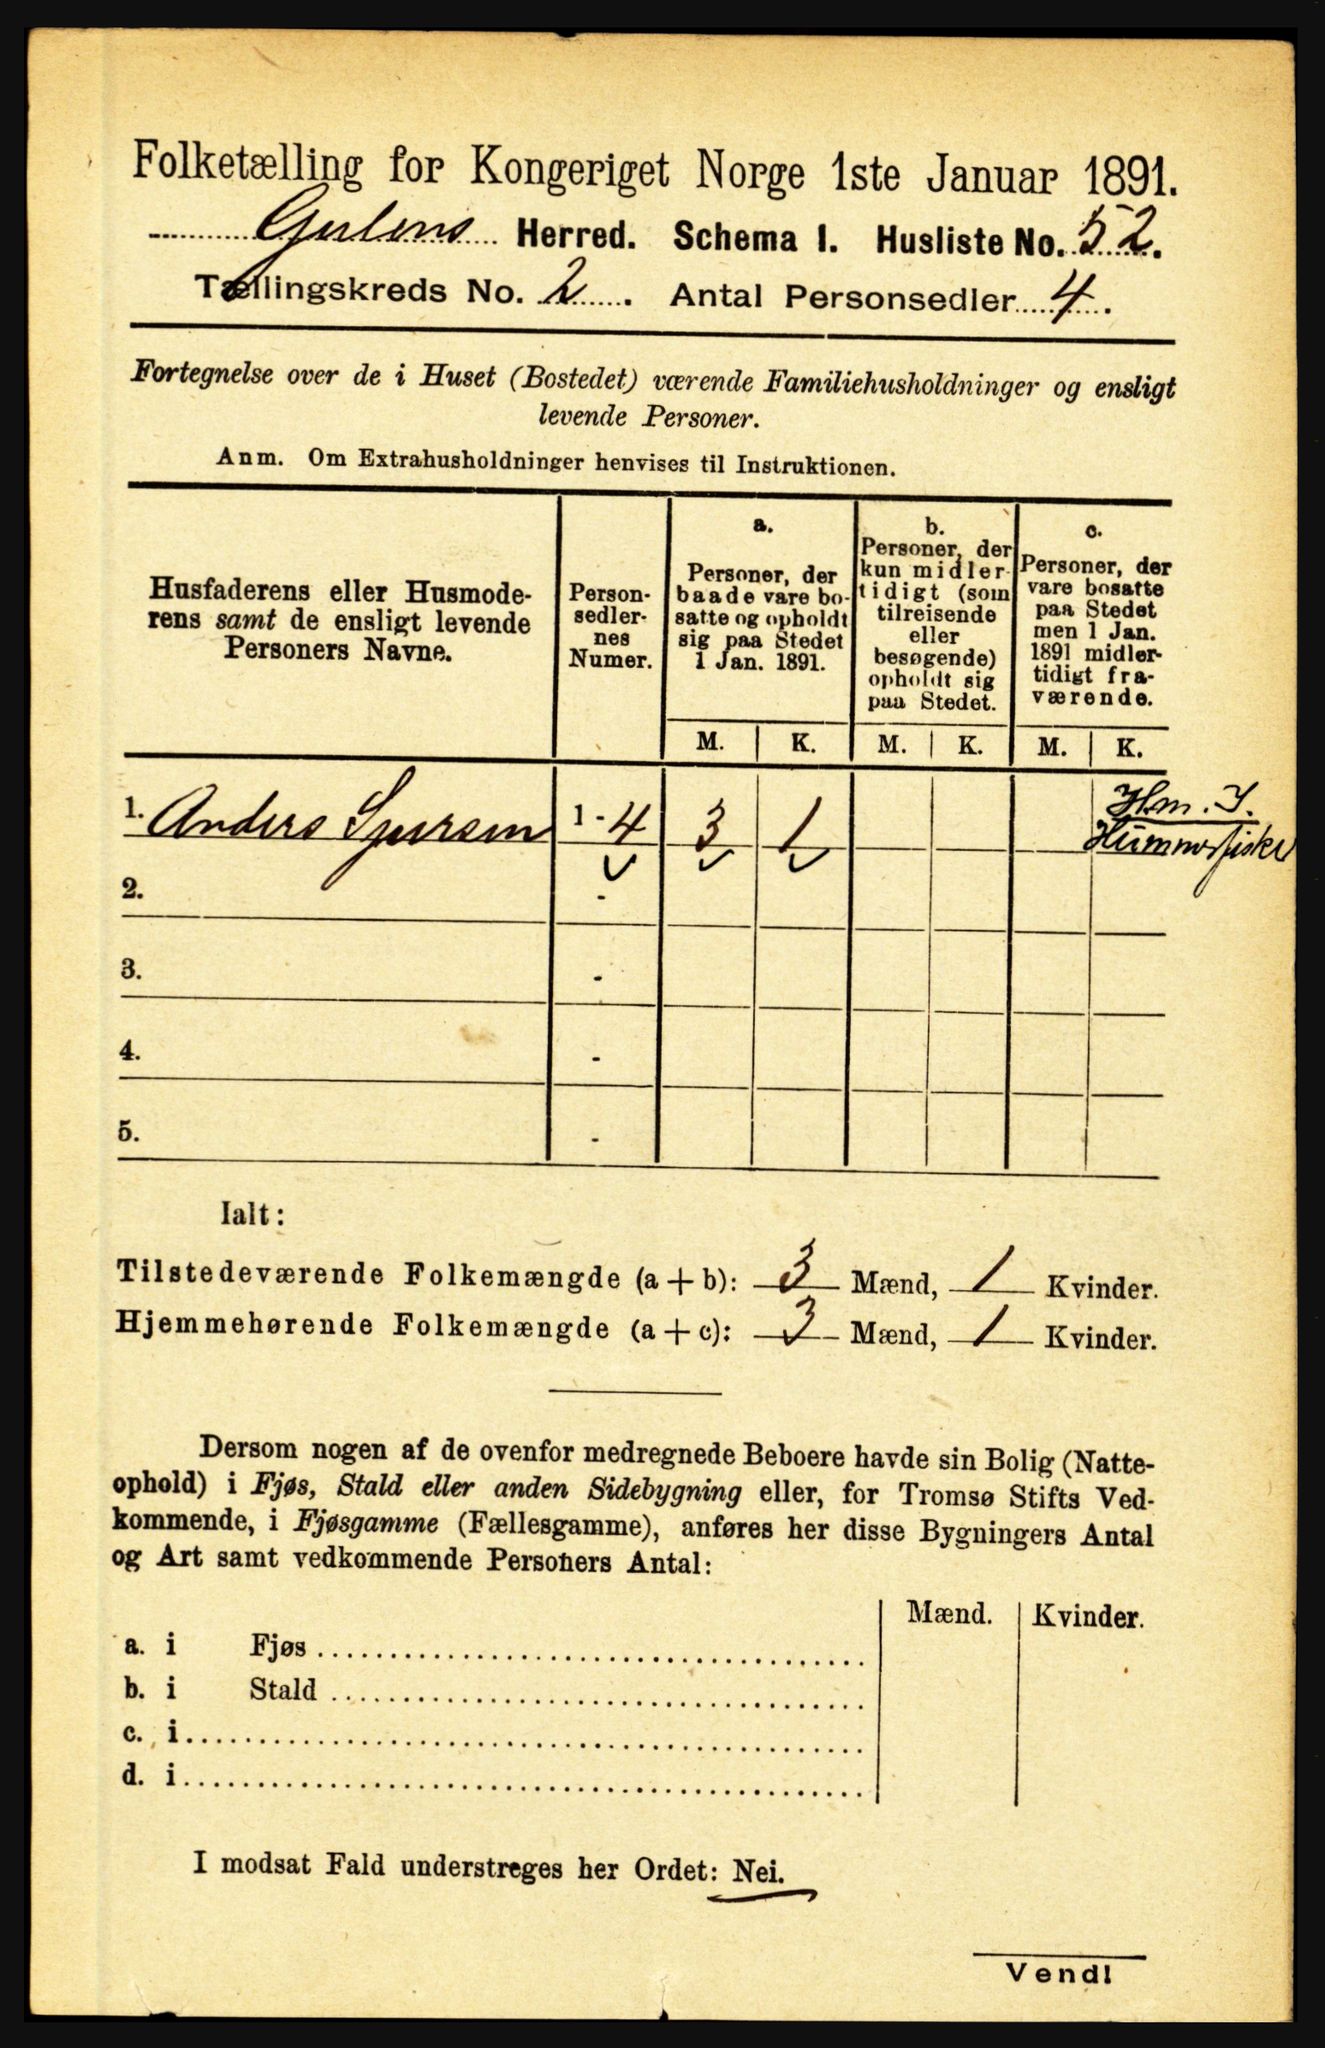 Folketælling for Kongeriget Norge 1ste Januar 1891.
Gulens Herred. Schema I. Husliste No. 52.
Tællingskreds No. 2. Antal Personsedler 4.
Fortegnelse over de i Huset (Bostedet) værende Familiehusholdninger og ensligt
levende Personer.
Anm. Om Extrahusholdninger henvises til Instruktionen.
Husfaderens eller Husmode-
rens samt de ensligt levende
Personers Navne.
Person-
sedler-
nes
Numer.
a.
Personer, der
baade vare bo-
satte og opholdt
sig paa Stedet
1 Jan. 1891.
b.
Personer, der
kun midler-
tidigt (som
tilreisende
eller
besøgende)
opholdt sig
paa Stedet.
c.
Personer, der
vare bosatte
paa Stedet
men 1 Jan.
1891 midler-
tidigt fra-
værende.
M. K. M. K. M. K.
1. Anders Sjursen 1 - 4 3 1
Hm. I.
Hummerfisker
2. -
3. -
4. -
5. -
Ialt:
Tilstedeværende Folkemængde (a + b): 3 Mænd, 1 Kvinder.
Hjemmehørende Folkemængde (a + c): 3 Mænd, 1 Kvinder.
Dersom nogen af de ovenfor medregnede Beboere havde sin Bolig (Natte-
ophold) i Fjøs, Stald eller anden Sidebygning eller, for Tromsø Stifts Ved-
kommende, i Fjøsgamme (Fællesgamme), anføres her disse Bygningers Antal
og Art samt vedkommende Personers Antal:
Mænd. Kvinder.
a. i Fjøs
b. i Stald
c. i
d. i
I modsat Fald understreges her Ordet: Nei.
Vend!